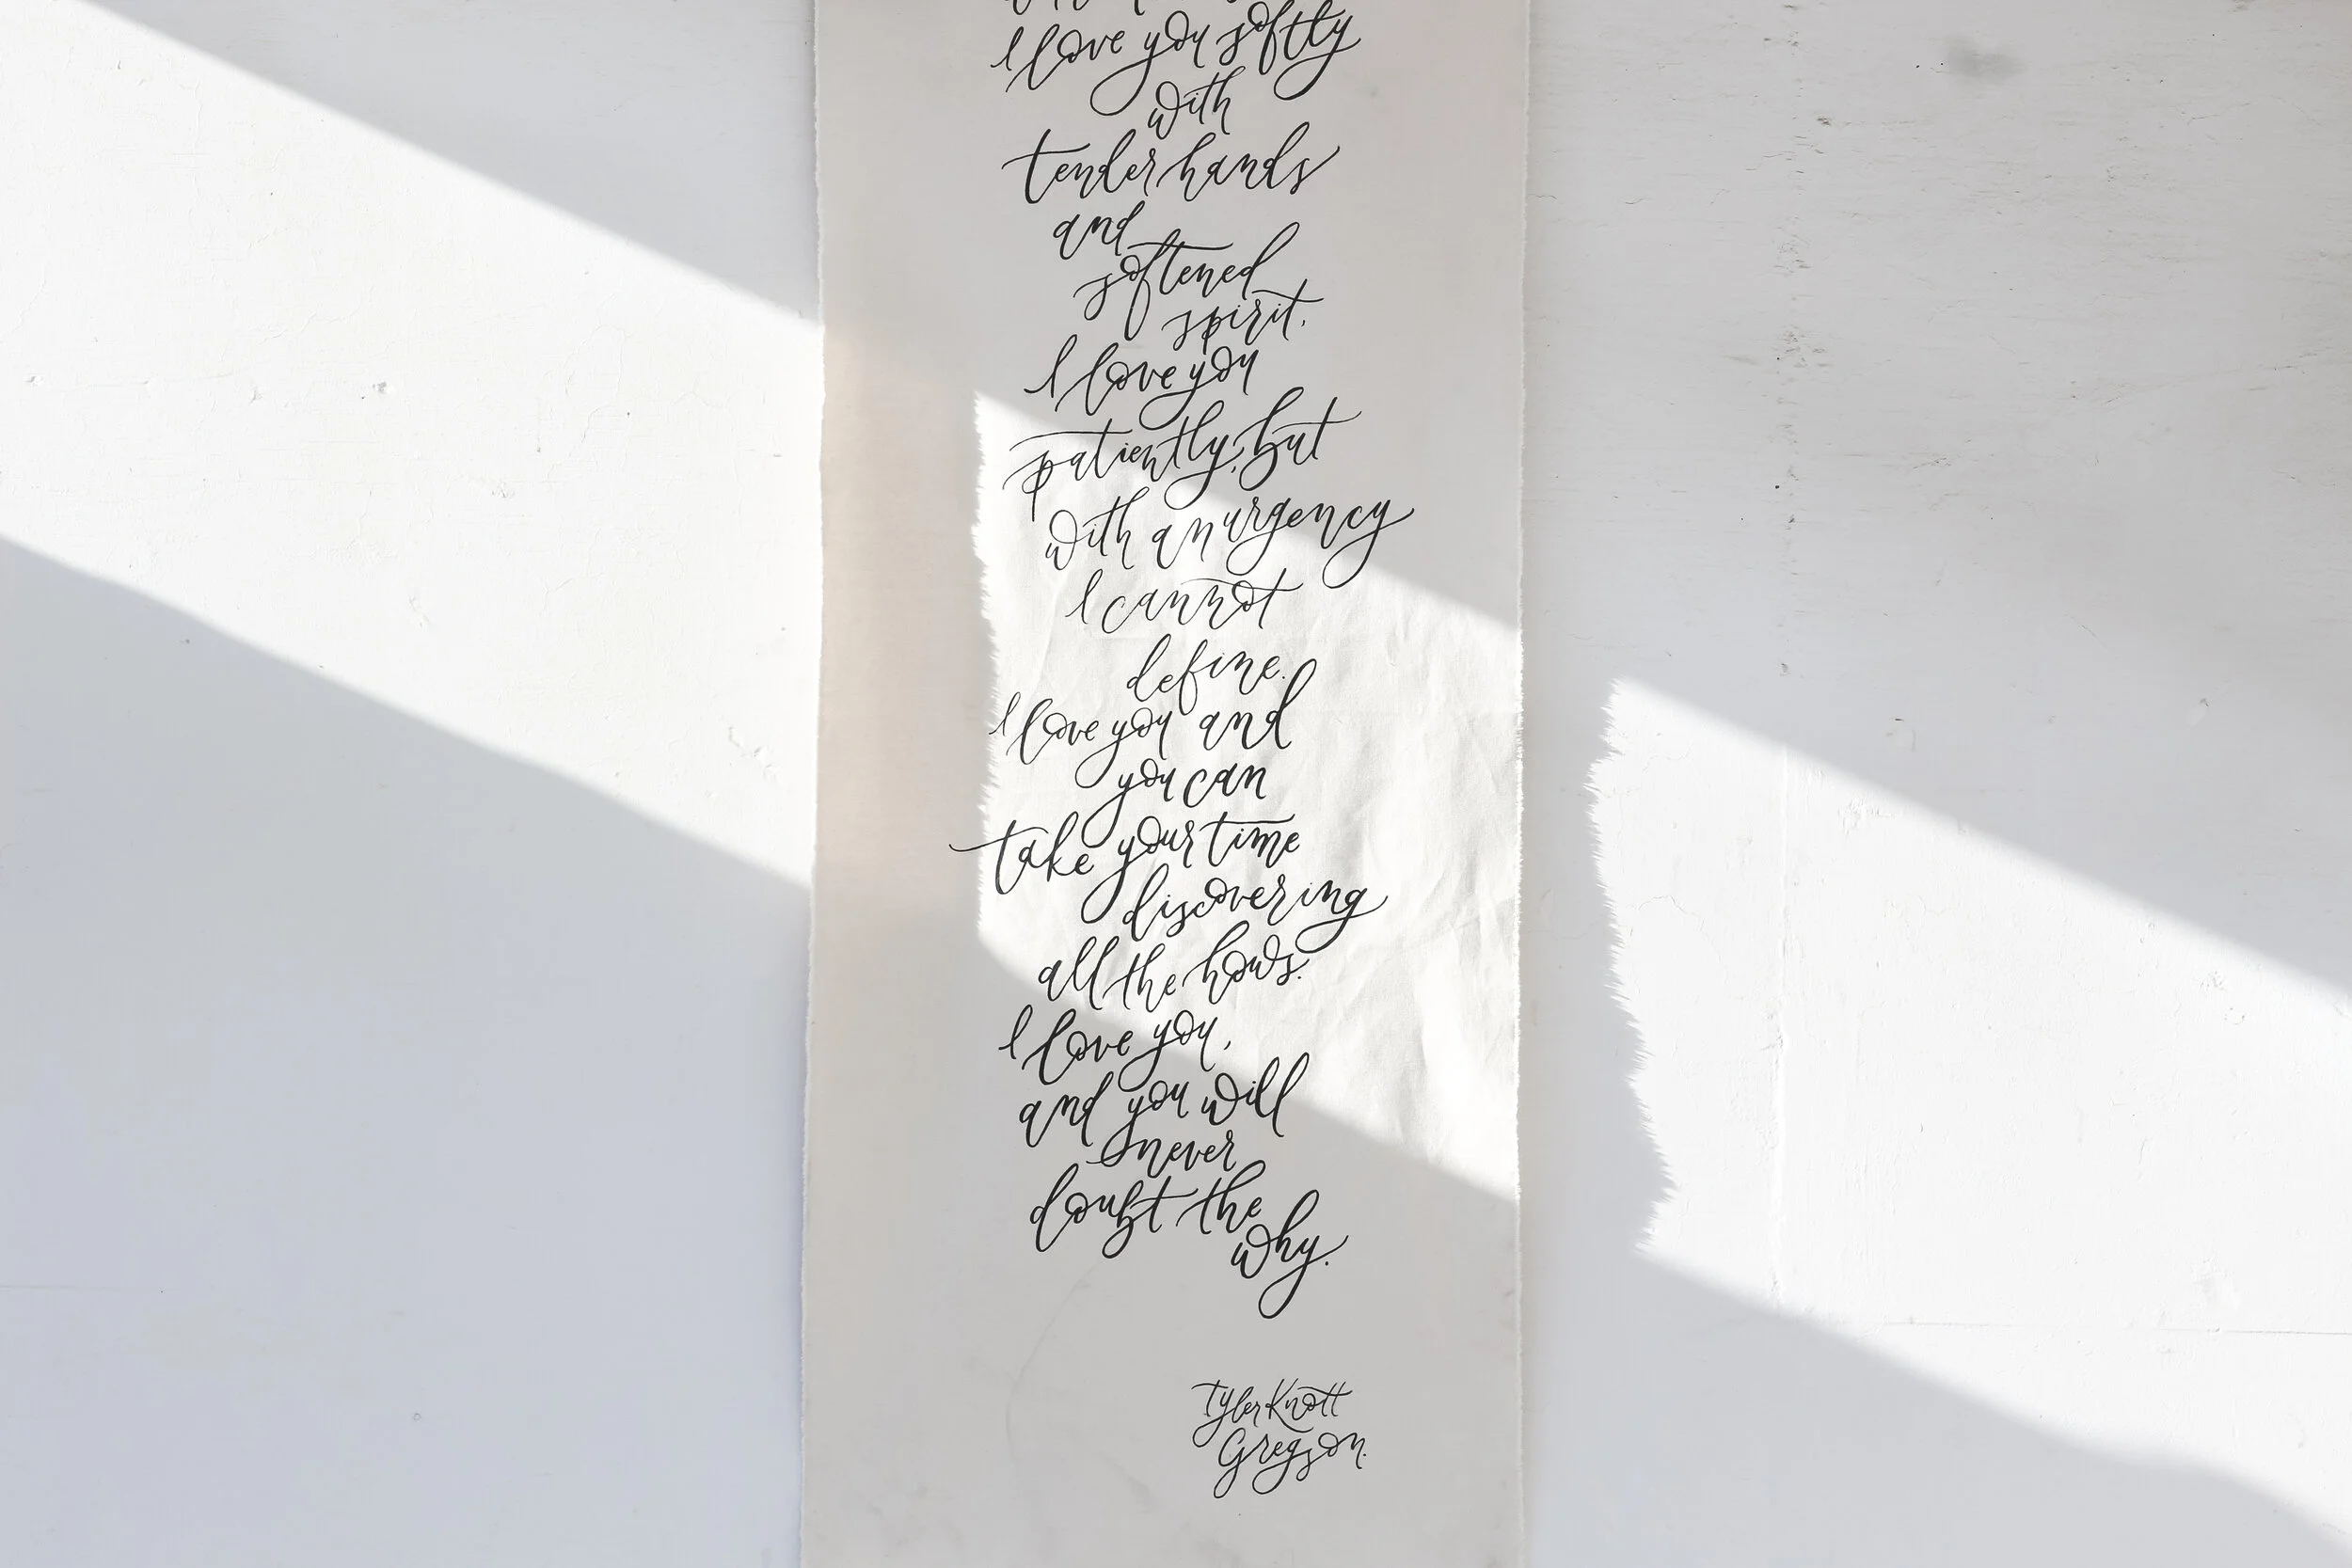 I love you softly
with
tender hands
and
softened
spirit.
I love you
patiently, but
with an urgency
I cannot
define.
I love you and
you can
take your time
discovering
all the hows.
I love you,
and you will
never
doubt the
why.
Tyler Knott
Gregson.